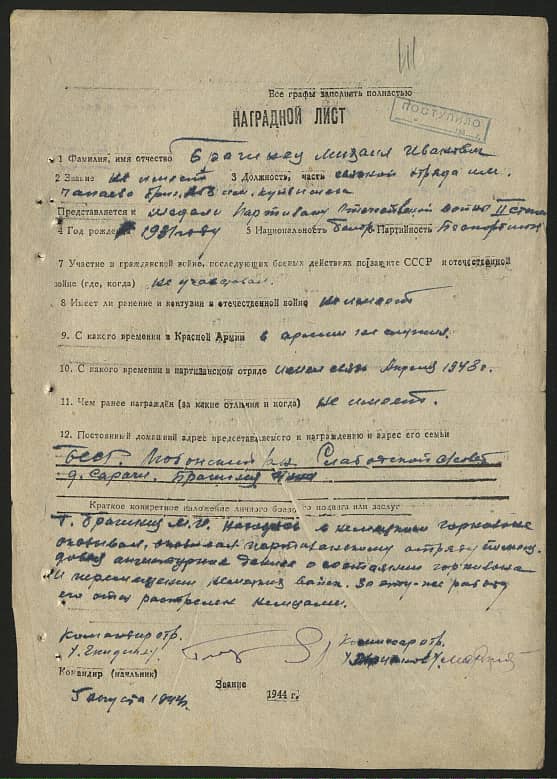 Все графы заполнять полностью
ПОСТУПИЛО
НАГРАДНОЙ ЛИСТ
1 Фамилия, имя отчество Брагинец Михаил Иванович
2 Звание не имеет 3 Должность, часть связной отряда им.
Чапаева
Представляется к медали Партизану Отечественной войны II степ
4 Год рождения 1931 году 5 Национальность белор Партийность Беспартийн
7 Участие в гражданской войне, последующих боевых действиях по защите СССР и отечественной
войне (где, когда) не участвовал
8 Имеет ли ранение и контузии в отечественной войне не имеет
9. С какого времени в Красной Армии в армии не служил.
10. С какого времени в партизанском отряде имел связь Апрель 1943 г.
11. Чем ранее награждён (за какие отличия и когда) не имеет.
12. Постоянный домашний адрес представляемого к награждению и адрес его семьи
БССР.
д.
Краткое конкретное изложение личного боевого подвига или заслуг
Т. Брагинец М. И. находясь в немецком гарнизоне
оказывал партизанскому отряду помощь
давая данные о состоянии гарнизона
и перемещении немецких войск. За эту же работу
его отец расстрелян немцами.
Командир отр. Комиссар отр.
Командир (начальник)
Звание
5 августа 1944г. 1944 г.